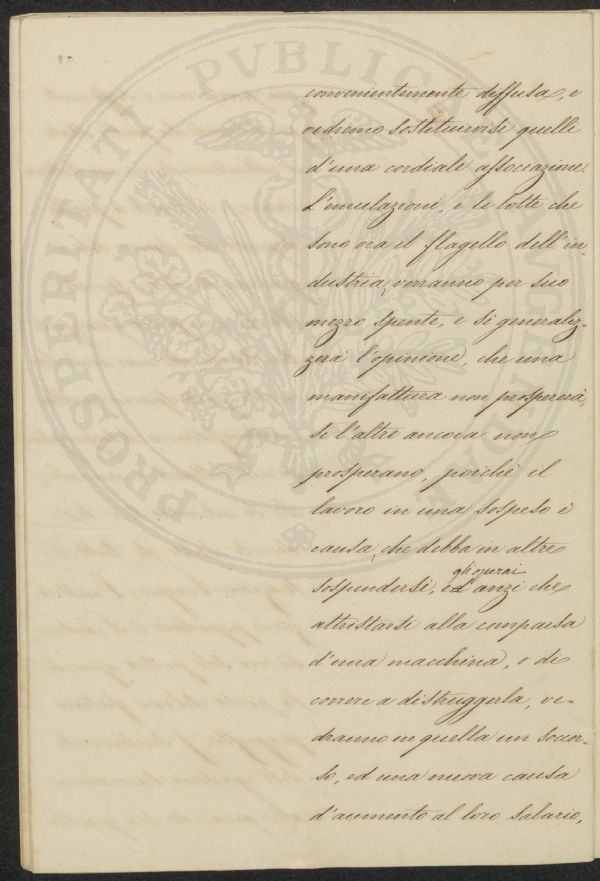 PROSPERITATI PVBLICAE AVGENDAE
convenientemente diffusa, e
vedremo sostituirvisi quelli
d'una cordiale associazione.
L'emulazioni, e le lotte che
sono ora il flagello dell'in-
dustria, verranno per suo
mezzo spente, e si generaliz-
zerà l'opinione, che una
manifattura non prospererà,
se l'altre ancora non
prosperano, poichè il
lavoro in una sospeso è
causa, che debba in altre
gli operai
sospendersi, ed anzi che
attristarsi alla comparsa
d'una macchina, o di
correre a distruggerla, ve-
dranno in quella un soccor-
so, ed una nuova causa
d'aumento al loro salario,